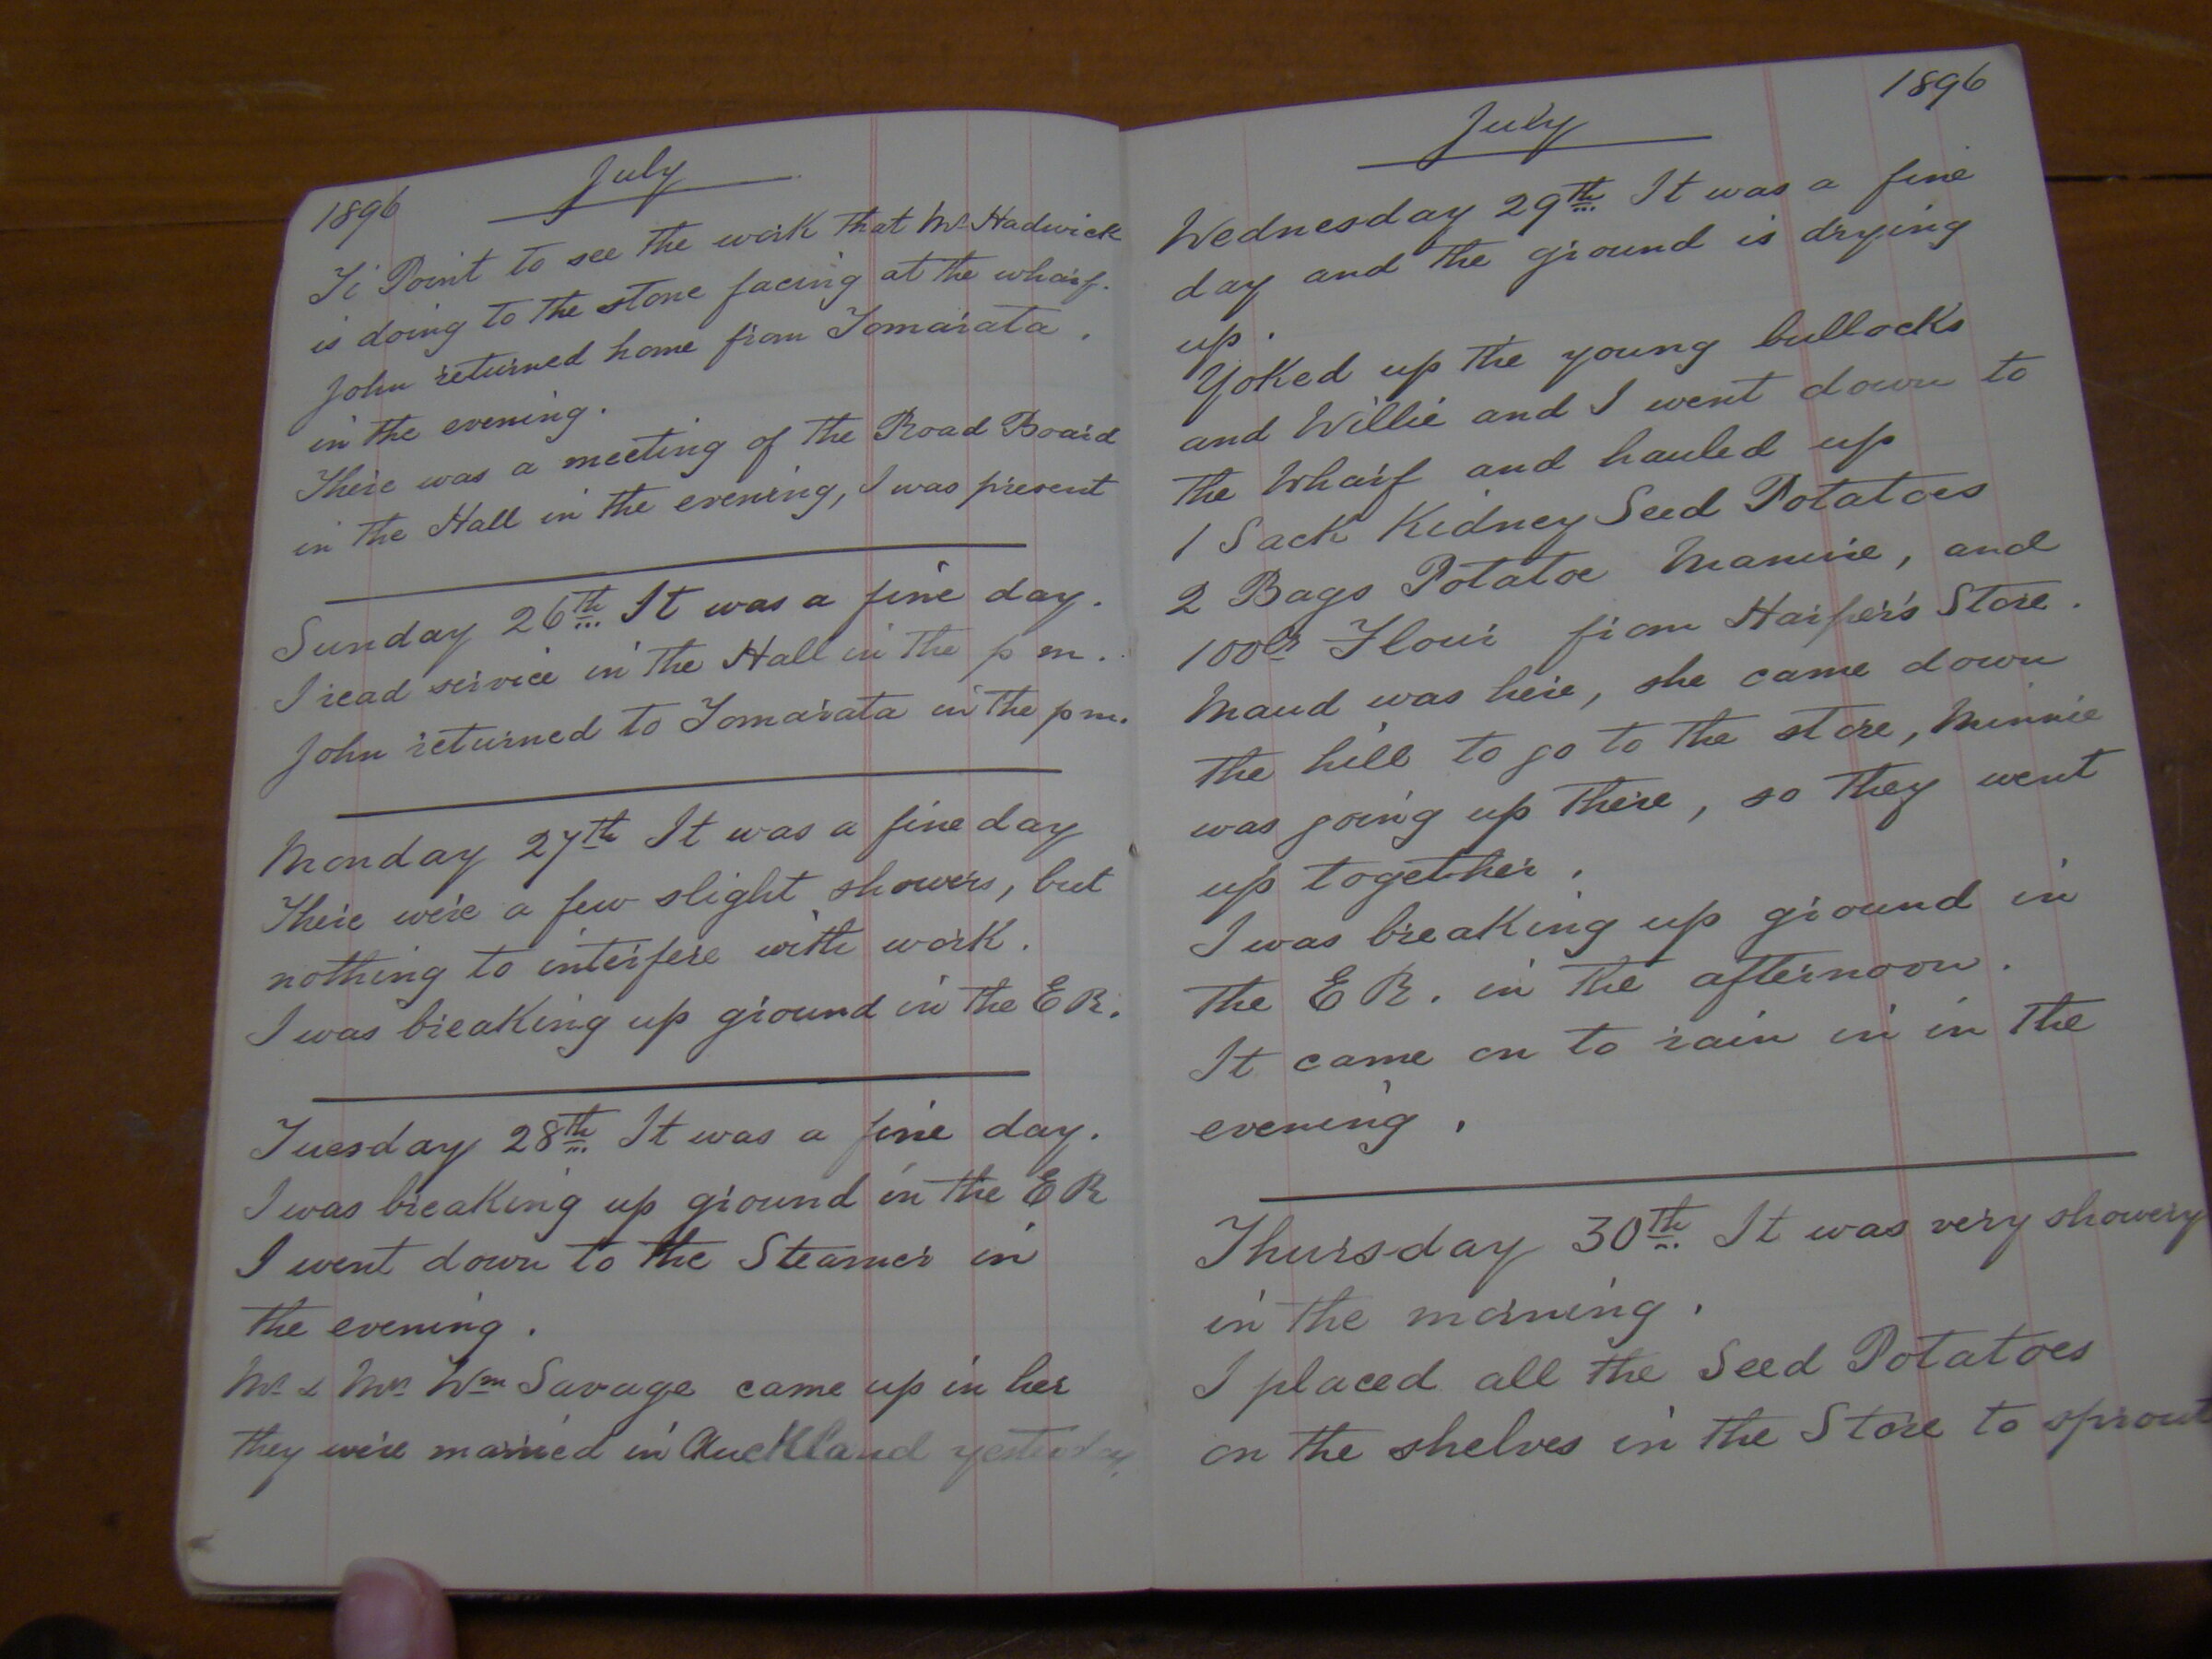 1896
July
Ti Point to see the work that Mr Hadwick
is doing to the stone facing at the wharf.
John returned home from Tomarata.
in the evening.
There was a meeting of the Road Board
in the Hall in the evening, I was present
Sunday 26th It was a fine day.
I read service in the Hall in the p m.
John returned to Tomarata in the p m.
Monday 27th It was a fine day
There were a few slight showers, but
nothing to interfere with work.
I was breaking up ground in the E R.
Tuesday 28th It was a fine day.
I was breaking up ground in the E R
I went down to the Steamer in
the evening.
Mr & Mrs Wm Savage came up in her
they were married in Auckland yesterday,
1896
July
Wednesday 29th It was a fine
day and the ground is drying
up.
Yoked up the young bullocks
and Willie and I went down to
the Wharf and hauled up
1 Sack Kidney Seed Potatoes
2 Bags Potatoe Manure, and
100lbs Flour from Harper's Store.
Maud was here, she came down
the hill to go to the store, Minnie
was going up there, so they went
up together.
I was breaking up ground in
the E R. in the afternoon.
It came on to rain in in the
evening.
Thursday 30th It was very showery
in the morning.
I placed all the Seed Potatoes
on the shelves in the Store to sprout